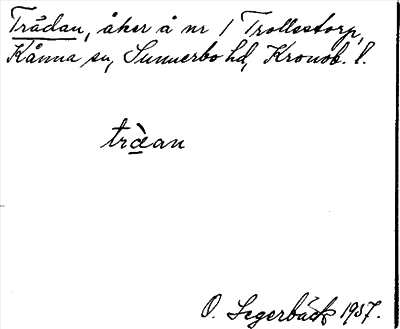 Trådan, åker å nr 1 Trollstorp,
Kånna sn, Sunnerbo hd, Kronob. l.
tràan
O. Segerbäck 1937.